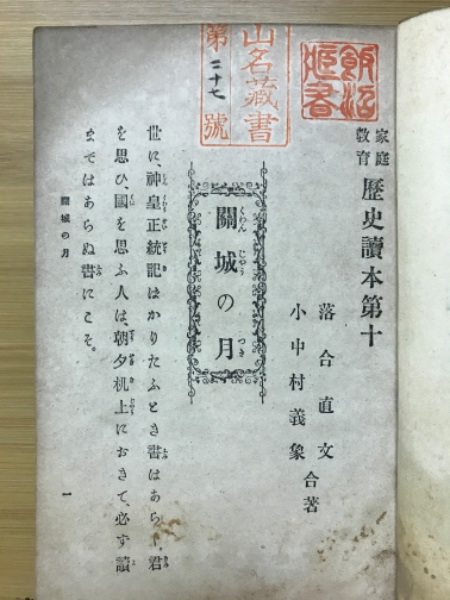 山名藏書
第二十七號
家庭教育 歷史讀本第十
落合直文
小中村義象 合著
關城の月
くわんじやう つき
世に、神皇正統記はかりたふとき書はあらし、君
を思ひ、國を思ふ人は、朝夕机上におきて、必す讀
まではあらぬ書にこそ。
關城の月
一